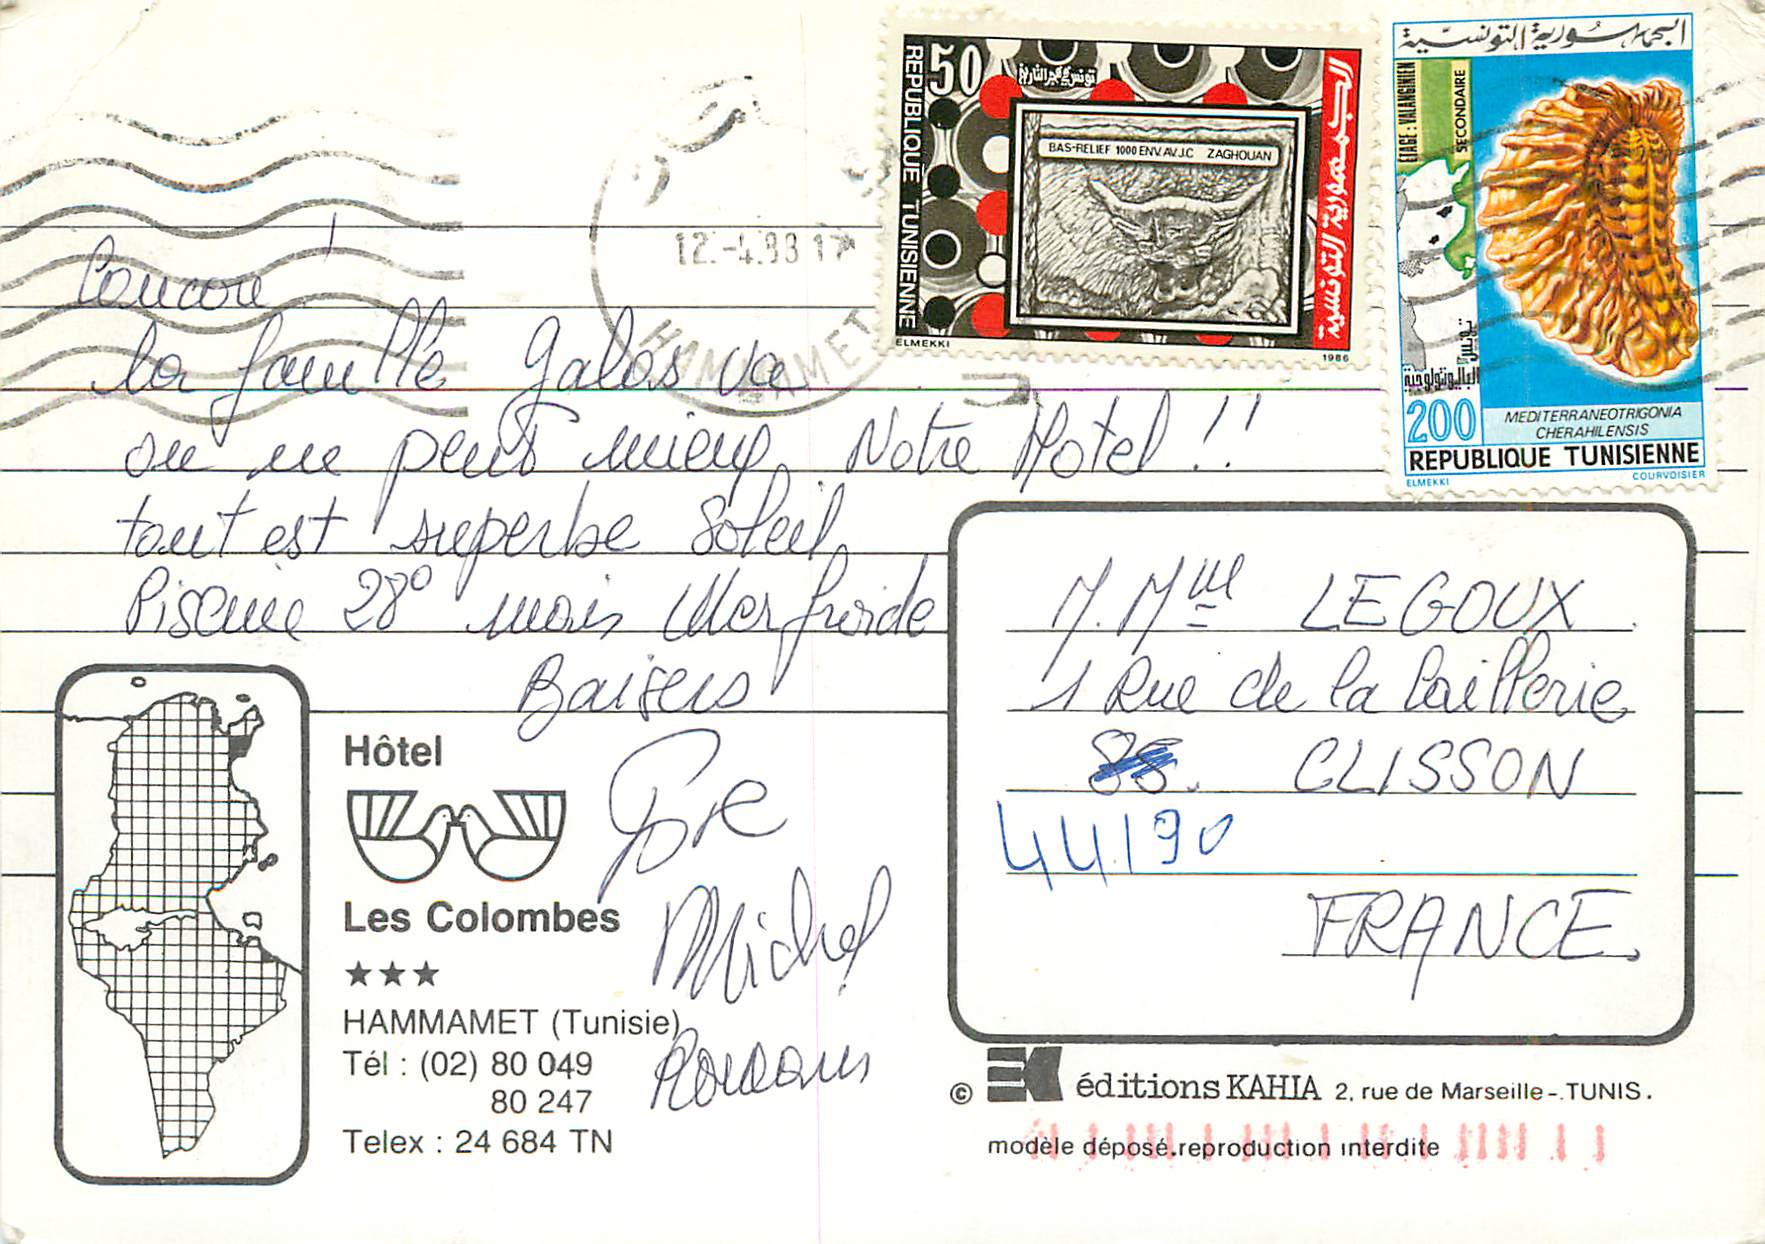 الجمهورية التونسية
ETAGE: VALANGINIEN
SECONDAIRE
تونس
البالیونتولوجية
200
MEDITERRANEOTRIGONIA
CHERAHILENSIS
REPUBLIQUE TUNISIENNE
ELMEKKI
COURVOISIER
50
REPUBLIQUE TUNISIENNE
تونس فجر التاريخ
الجمهورية التونسية
BAS-RELIEF 1000 ENV. AV. J.C ZAGHOUAN
ELMEKKI
1986
12.-4.93 17
HAMMAMET
Coucou !
la famille Galas va
on ne peut mieux. Notre Hotel !!
tout est superbe Soleil
Piscine 28° mais Mer froide
Baisers
Michel
Hôtel
Les Colombes
★★★
HAMMAMET (Tunisie)
Tél : (02) 80 049
80 247
Telex : 24 684 TN
M. Mme LEGOUX
1 Rue de la
CLISSON
44190
FRANCE
© EK éditions KAHIA 2, rue de Marseille -. TUNIS.
modèle déposé.reproduction interdite